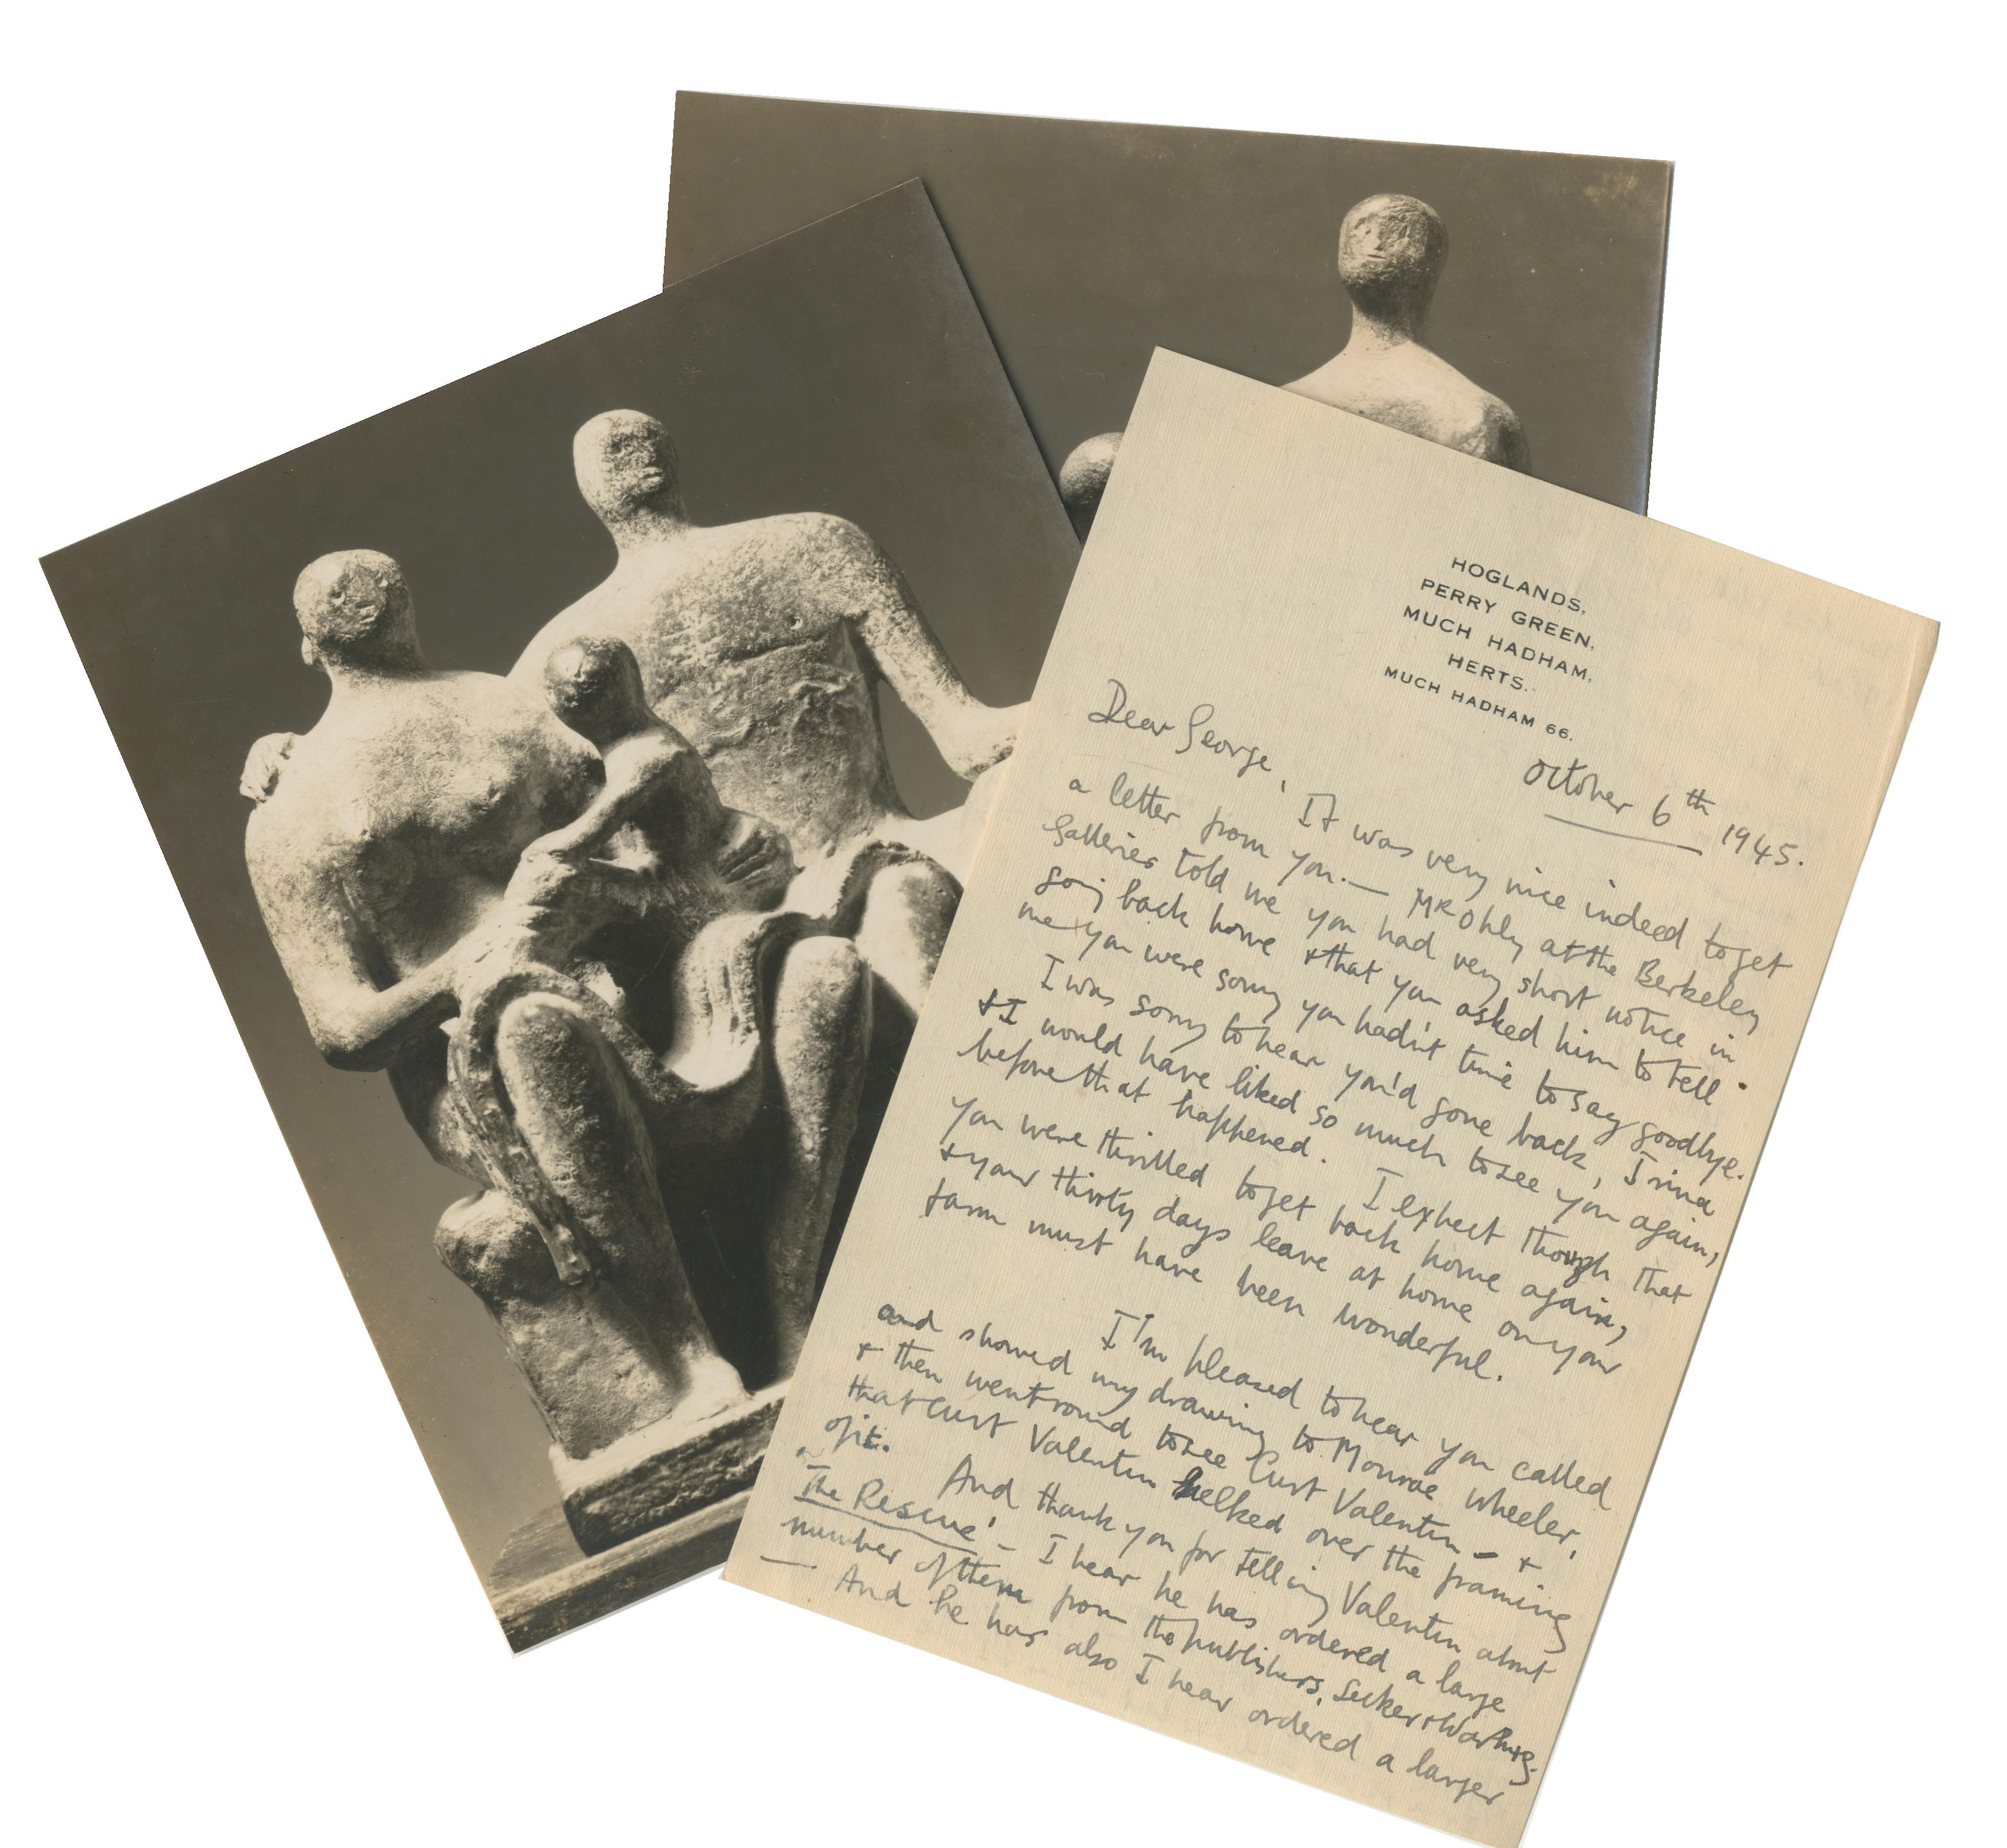 HOGLANDS,
PERRY GREEN,
MUCH HADHAM,
HERTS.
MUCH HADHAM 66.
October 6th 1945.
Dear George, It was very nice indeed to get
a letter from you.— Mr Ohly at the Berkeley
Galleries told me you had very short notice in
going back home & that you asked him to tell
me you were sorry you hadn't time to say goodbye.
I was sorry to hear you'd gone back, Irina
& I would have liked so much to see you again,
before that happened. I expect though that
you were thrilled to get back home again,
& your thirty days leave at home on your
farm must have been wonderful.
I'm pleased to hear you called
and showed my drawing to Monroe Wheeler,
& then went round to see Curt Valentin — &
that Curt Valentin helked over the framing
of it. And thank you for telling Valentin about
'The Rescue' — I hear he has ordered a large
number of them from the publishers, Secker & Warburg.
— And he has also I hear ordered a larger